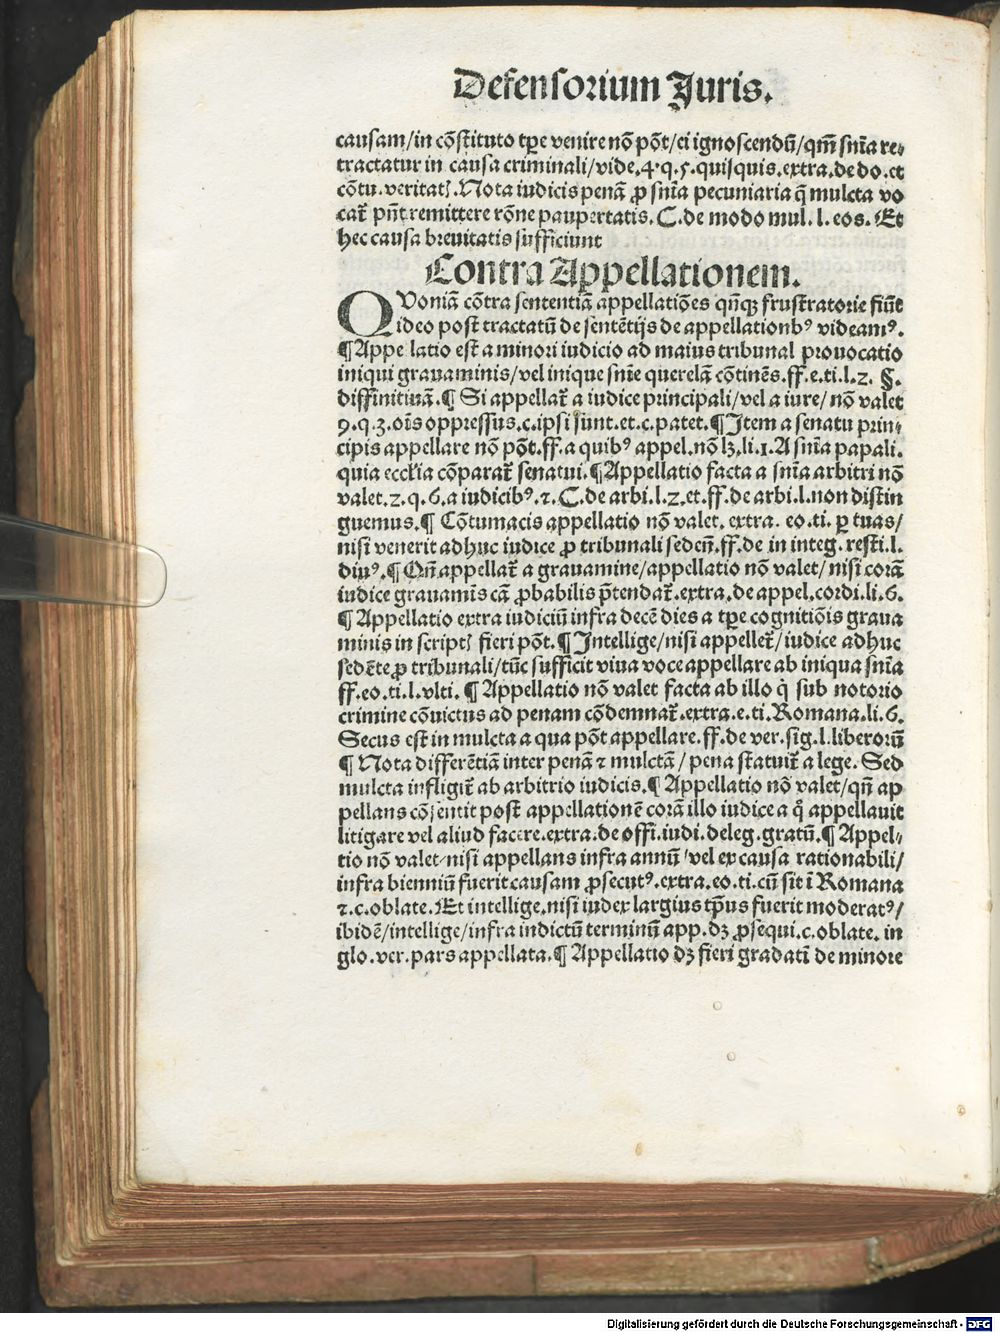 Defensorium Juris.
causam/in cõstituto tꝑe venire nõ põt/ei ignoscendũ/qm̃ snĩa re-
tractatur in causa criminali/vide.4.q.5.quisquis.extra.de do.et
cõtu.veritatꝭ.Nota iudicis penã ꝓ snĩa pecuniaria q̃ mulcta vo
cat᷑ pñt remittere rõne paupertatis.C.de modo mul.l.eos.Et
hec causa breuitatis sufficiunt
Contra Appellationem.
QVoniã cõtra sententiã appellatiões qñqꝫ frustratorie fiũt
ideo post tractatũ de sentẽtijs de appellationbꝰ videamꝰ.
¶Appe latio est a minori iudicio ad maius tribunal prouocatio
iniqui grauaminis/vel inique snĩe querelã cõtinẽs.ff.e.ti.l.2. §.
diffinitiuã.¶ Si appellat᷑ a iudice principali/vel a iure/nõ valet
9.q.3.oĩs oppressus.c.ipsi sunt.et.c.patet.¶Item a senatu prin-
cipis appellare nõ põt.ff.a quibꝰ appel.nõ lꝫ.li.1.A snĩa papali.
quia eccľia cõparat᷑ senatui.¶Appellatio facta a snĩa arbitri nõ
valet.2.q.6.a iudicibꝰ.⁊.C.de arbi.l.2.et.ff.de arbi.l.non distin
guemus.¶ Cõtumacis appellatio nõ valet.extra.eo.ti.ꝑ tuas/
nisi venerit adhuc iudice ꝓ tribunali sedeñ.ff.de in integ.resti.l.
diuꝰ.¶Qñ appellat᷑ a grauamine/appellatio nõ valet/nisi corã
iudice grauamĩs cã ꝓbabilis p̃tendat᷑.extra.de appel.cordi.li.6.
¶Appellatio extra iudiciũ infra decẽ dies a tꝑe cognitiõis graua
minis in scriptꝭ fieri põt.¶Intellige/nisi appellet᷑/iudice adhuc
sedẽte ꝓ tribunali/tũc sufficit viua voce appellare ab iniqua snĩa
ff.eo.ti.l.vlti.¶ Appellatio nõ valet facta ab illo q̇ sub notorio
crimine cõuictus ad penam cõdemnat᷑.extra.e.ti.Romana.li.6.
Secus est in mulcta a qua põt appellare.ff.de ver.sig.l.liberorũ
¶ Nota differẽtiã inter penã ⁊ mulctã/pena statuit᷑ a lege.Sed
mulcta infligit᷑ ab arbitrio iudicis.¶Appellatio nõ valet/qñ ap
pellans cõsentit post appellationẽ corã illo iudice a q̊ appellauit
litigare vel aliud facere.extra.de offi.iudi.deleg.gratũ.¶ Appel-
tio nõ valet/nisi appellans infra annũ/vel ex causa rationabili/
infra bienniũ fuerit causam ꝓsecutꝰ.extra.eo.ti.cũ sit ĩ Romana
⁊.c.oblate.Et intellige.nisi iudex largius tp̃us fuerit moderatꝰ/
ibidẽ/intellige/infra indictũ terminũ app.dꝫ ꝓsequi.c.oblate.in
glo.ver.pars appellata.¶ Appellatio dꝫ fieri gradatĩ de minore
Digitalisierung gefördert durch die Deutsche Forschungsgemeinschaft - DFG